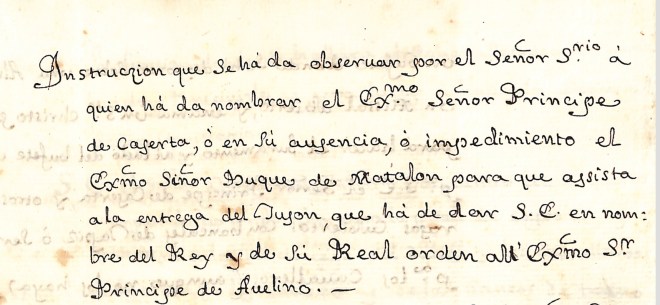 Instruczion que se há da obseruar por el Señor S.rio á
quien há da nombrar el Ex.mo Señor Principe
de Caserta, ó en sú ausencia, ó impedimiento el
Exmo Siñor Duque de Matalon para que assista
a la entrega del Tuson, que há de dar S. E. en nom:
bre del Rey y de sú Real orden all' Exmo S.r
Principe de Auelino. —